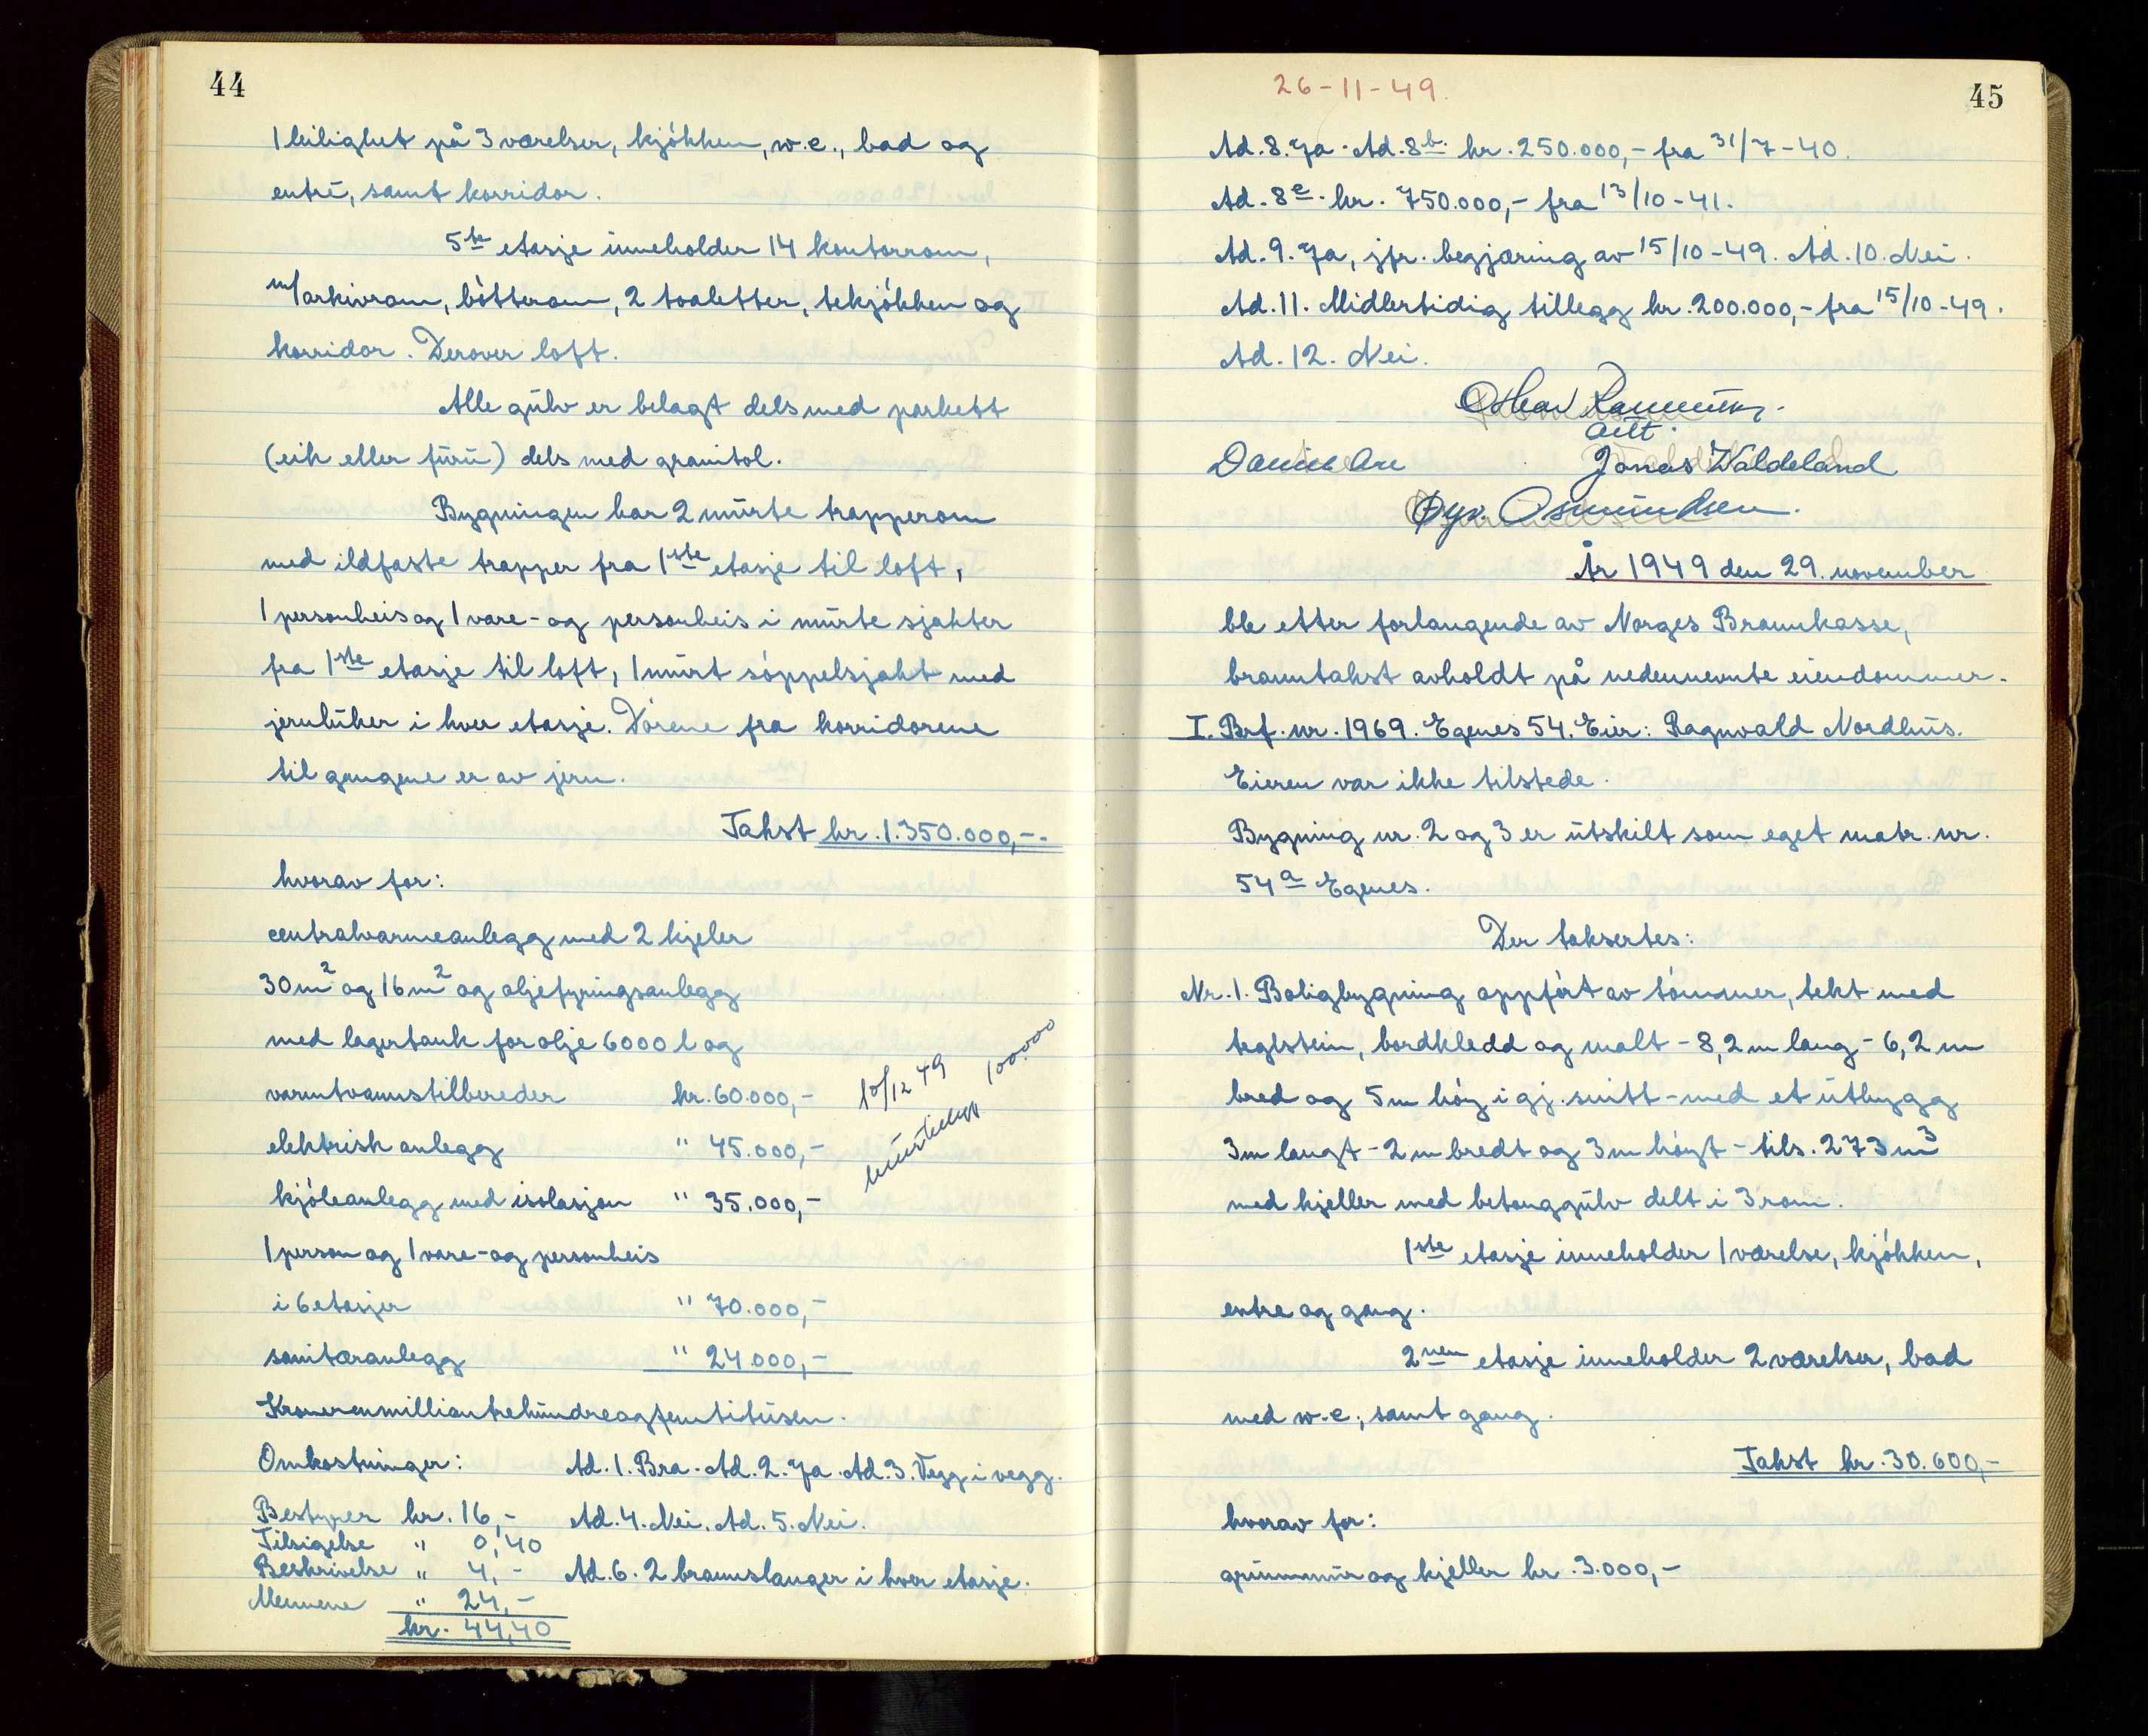 44
1 leilighet på 3 værelser, kjökken, w.c., bad og
entré, samt korridor.
5te etasje inneholder 14 kontorrom,
m/arkivrom, bötterom, 2 toaletter, tekjökken og
korridor. Derover loft.
Alle gulv er belagt dels med parkett
(eik eller furu) dels med granitol.
Bygningen har 2 murte trapperom
med ildfaste trapper fra 1ste etasje til loft,
1 personheis og 1 vare- og personheis i murte sjakter
fra 1ste etasje til loft, 1 murt söppelsjakt med
jernluker i hver etasje. Dörene fra korridorene
til gangene er av jern.
Takst kr. 1.350.000,-.
hvorav for:
centralvarmeanlegg med 2 kjeler
30 m² og 16 m² og oljefyringsanlegg
med lagertank for olje 6000 l og
varmtvannstilbereder kr. 60.000,-
elektrisk anlegg " 45.000,-
kjöleanlegg med isolasjon " 35.000,-
1 person og 1 vare- og personheis
i 6 etasjer " 70.000,-
sanitæranlegg " 24.000,-
10/12 49
100.000
Kronerenmilliontrehundreogfemtitusen.
Omkostninger: Ad. 1. Bra. Ad. 2. Ja. Ad. 3. Vegg i vegg.
Bestyrer kr. 16,- Ad. 4. Nei. Ad. 5. Nei.
Tilsigelse " 0,40
Beskrivelse " 4,- Ad. 6. 2 brannslanger i hver etasje.
Mennene " 24,-
kr. 44,40
26-11-49.
45
Ad. 8. Ja. Ad. 8b. kr. 250.000,- fra 31/7-40.
Ad. 8c. kr. 750.000,- fra 13/10-41.
Ad. 9. Ja, jfr. begjæring av 15/10-49. Ad. 10. Nei.
Ad. 11. Midlertidig tillegg kr. 200.000,- fra 15/10-49.
Ad. 12. Nei.
Jonas Waldeland
Osmundsen.
År 1949 den 29. november
ble etter forlangende av Norges Brannkasse,
branntakst avholdt på nedennevnte eiendommer.
I. Brf. nr. 1969. Egenes 54. Eier: Ragnvald Nordhus.
Eieren var ikke tilstede.
Bygning nr. 2 og 3 er utskilt som eget matr. nr.
54a Egenes.
Der taksertes:
Nr. 1. Boligbygning oppfört av tömmer, tekt med
teglstein, bordkledd og malt - 8,2 m lang - 6,2 m
bred og 5 m höy i gj. snitt - med et utbygg
3 m langt - 2 m bredt og 3 m höyt - tils. 273 m³
med kjeller med betonggulv delt i 3 rom.
1ste etasje inneholder 1 værelse, kjökken,
entre og gang.
2nen etasje inneholder 2 værelser, bad
med w.c., samt gang.
Takst kr. 30.600,-
hvorav for:
grunnmur og kjeller kr. 3.000,-